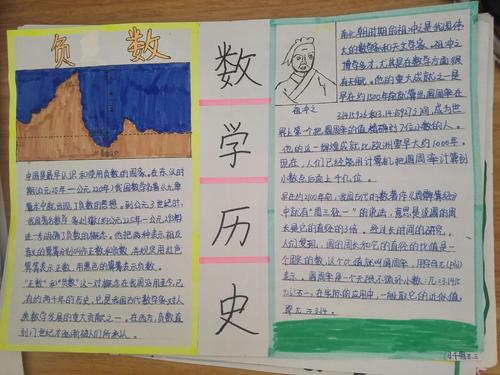 负数
中国是最早认识和使用负数的国家。在东汉时
期(公元25年—公元220年)我国数学名著《九章
算术》中就出现了负数的思想。到公元3世纪时,
我国著名数学
进一步明确了负数的概念。他把两种表示相反
意义的量分别叫作正数和负数,并规定用红色
算筹表示正数,用黑色的算筹表示负数。
"正数"和"负数"这一对概念在我国沿用至今,已
有约两千年的历史,它是我国古代数学家对人
类数学发展的重大贡献之一。在西方,负数直
到17世纪才
数
学
历
史
祖冲之
南北朝时期的祖冲之是我国伟
大的数学家和天文学家。祖冲之
博学多才,尤其是在数学方面很
有天赋。他的重大成就之一是
早在约1500年前就算出圆周率在
3.1415926和3.1415927之间,成为世
界上第一个把圆周率的值精确到7位小数的人。
他的这一辉煌成就比欧洲要早大约1000年。
现在,人们已经能用计算机把圆周率计算到
小数点后面上千亿位。
早在约2000年前,我国古代的数学著作《周髀算经》
中就有"周三径一"的说法,意思是说圆的周
长是它的直径的3倍。经过长时间的研究,
人们发现,圆的周长和它的直径的比值是一
个固定的数,这个比值就叫圆周率,用字母π(pài)
表示。圆周率是一个无限不循环小数:π=3.1415
926……,在实际的应用中,一般取它的近似值,
即π≈3.14。